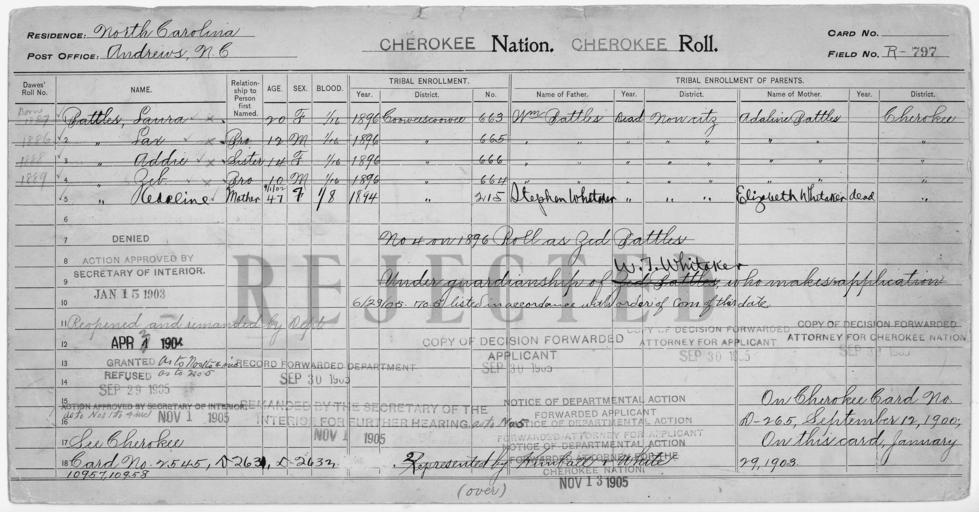 RESIDENCE: North Carolina
POST OFFICE: Andrews, N.C
CHEROKEE Nation. CHEROKEE Roll.
CARD NO.
FIELD NO. R-797
Dawes' Roll No. NAME. Relationship to Person first Named. AGE. SEX. BLOOD. TRIBAL ENROLLMENT. Year. District. No. TRIBAL ENROLLMENT OF PARENTS. Name of Father. Year. District. Name of Mother. Year. District.
1887 Battles, Laura 20 F 1/16 1896 Coowees coowee 663 Wm Battles Dead Non citz Adaline Battles Cherokee
1886 2 " Lax Bro 12 M 1/16 1896 " 665 " " " " " "
1888 3 " Addie Sister 14 F 1/16 1896 " 666 " " " " " "
1889 4 " Zeb Bro 10 M 1/16 1896 " 664 " " " " " "
5 " Mother 9/1/02 47 F 1/8 1894 " 215 Stephen Whitaker " " " Elizabeth Whitaker dead "
6
7 No 4 on 1896 Roll as Zed Battles
DENIED
8 W. T. Whitaker
ACTION APPROVED BY
SECRETARY OF INTERIOR.
9 Under guardianship of Zed Battles, who makes application
JAN 15 1903
REJECTED
10 6/29/05 No 5 listed in accordance with order of Com of this date
11 Reopened and remanded by Dept.
12 APR 4 1904
COPY OF DECISION FORWARDED
APPLICANT
SEP 30 1905
COPY OF DECISION FORWARDED
ATTORNEY FOR APPLICANT
SEP 30 1905
COPY OF DECISION FORWARDED
ATTORNEY FOR CHEROKEE NATION
SEP 30 1905
13 GRANTED As to Nos 1 to 4 incl
REFUSED as to No 5
14 SEP 29 1905
RECORD FORWARDED DEPARTMENT
SEP 30 1905
15
ACTION APPROVED BY SECRETARY OF INTERIOR.
as to Nos 1 to 4 incl
16 NOV 1 1905
REMANDED BY THE SECRETARY OF THE
INTERIOR FOR FURTHER HEARING as to No 5
NOV 1 1905
NOTICE OF DEPARTMENTAL ACTION
FORWARDED APPLICANT
NOTICE OF DEPARTMENTAL ACTION
FORWARDED ATTORNEY FOR APPLICANT
NOTICE OF DEPARTMENTAL ACTION
FORWARDED ATTORNEY FOR THE
CHEROKEE NATION
NOV 13 1905
On Cherokee Card No.
D-265, September 12, 1900;
On this card, January
29, 1903.
17 See Cherokee
18 Card No. 2545, D-2631, D-2632
10957, 10958
Represented by Kimball & White
(over)